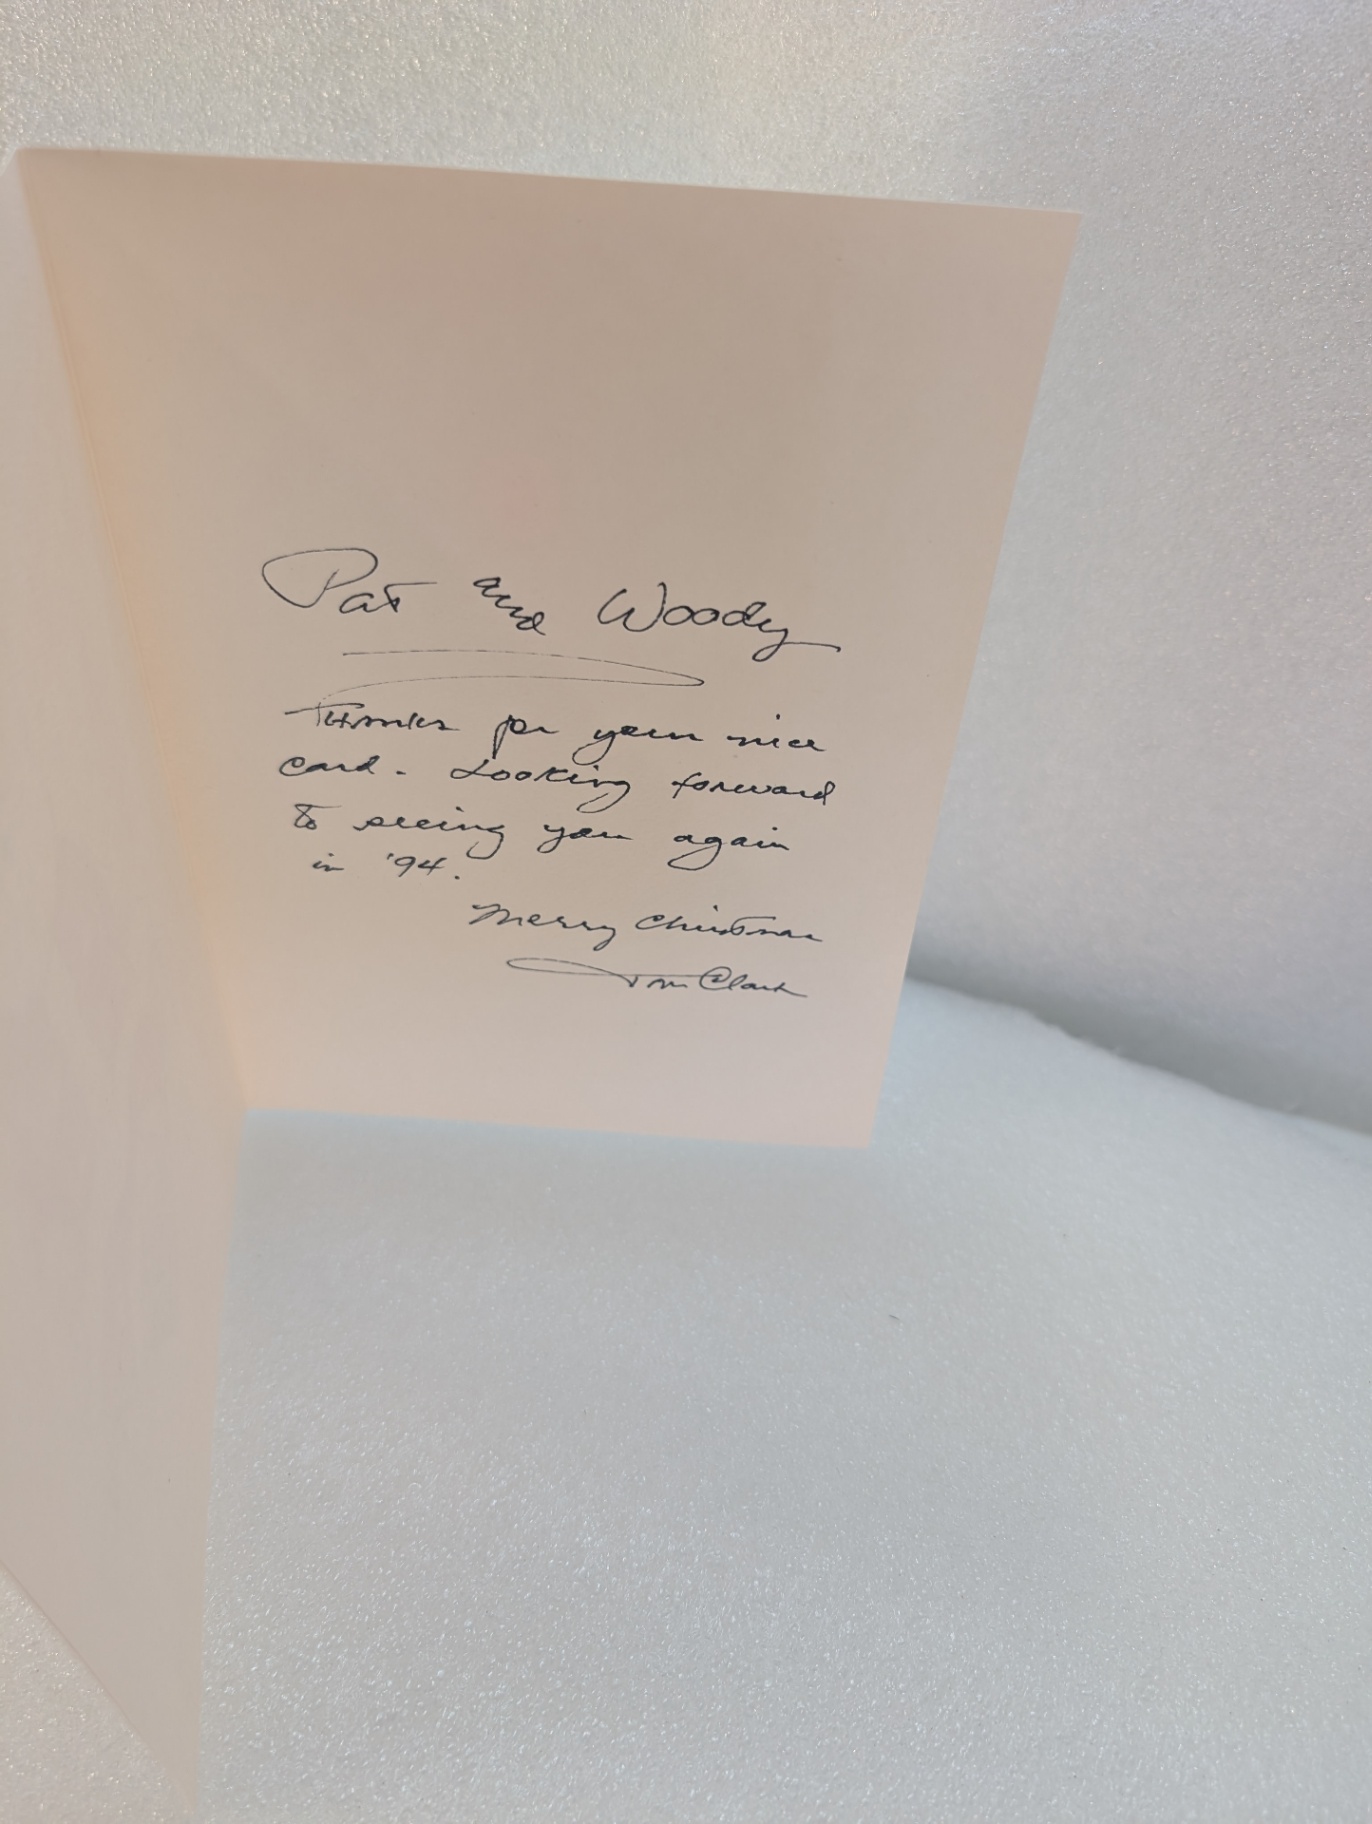 Pat and Woody
Thanks for your nice
card. Looking forward
to seeing you again
in '94.
Merry Christmas
Tom Clark